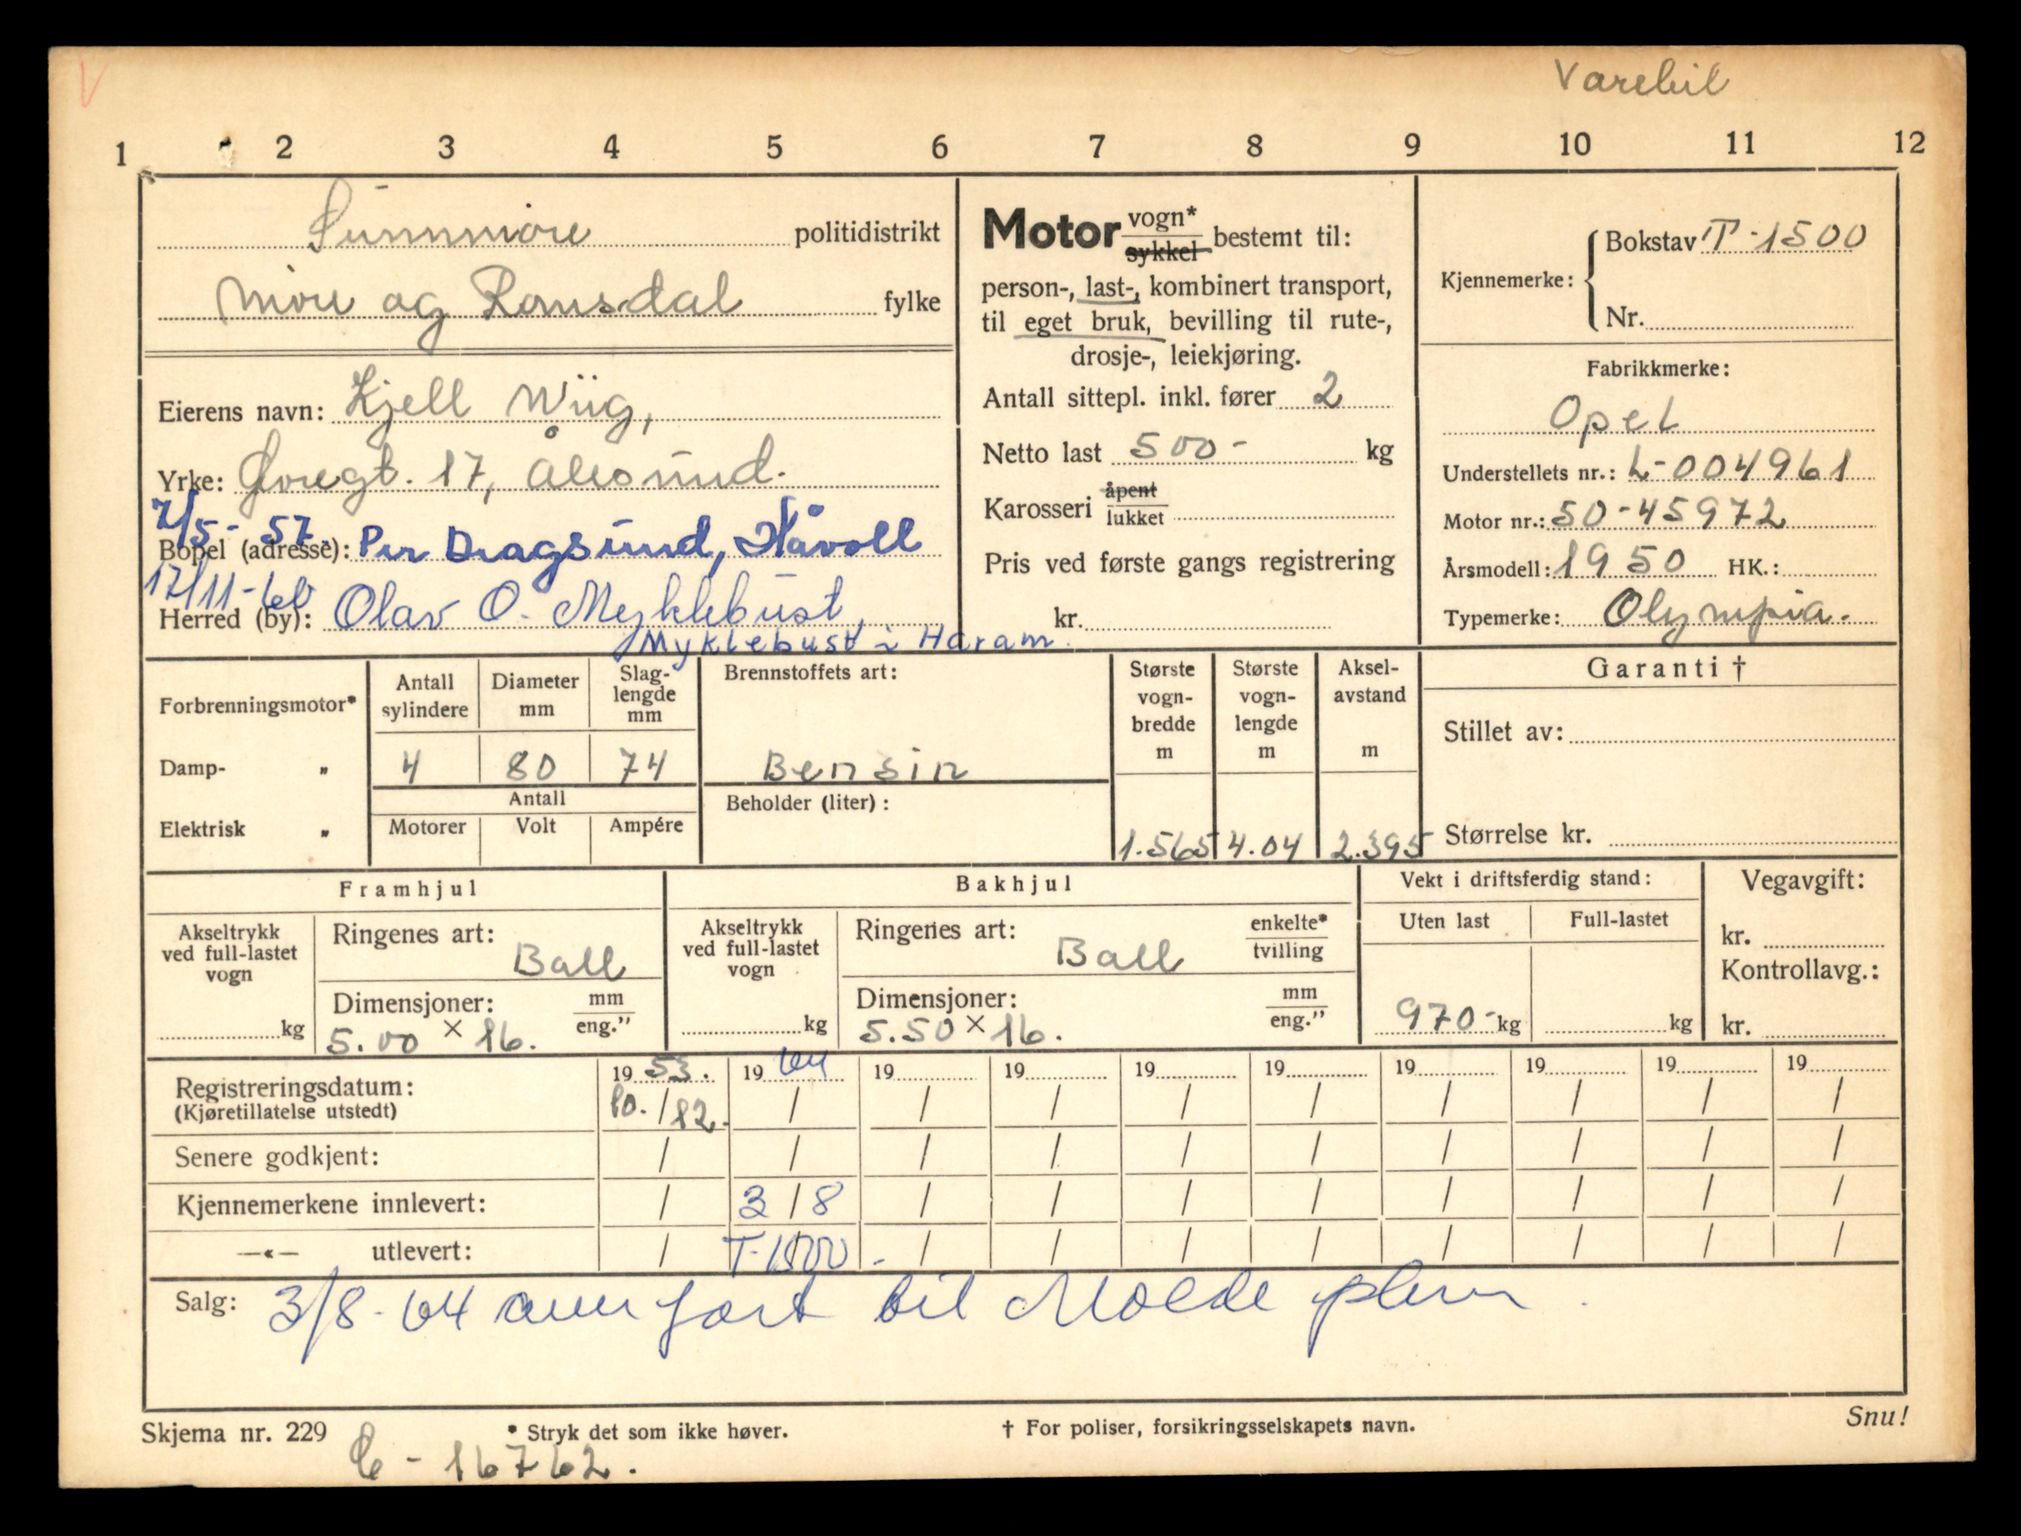 V
Varebil
1 2 3 4 5 6 7 8 9 10 11 12
Sunnmøre politidistrikt
Møre og Romsdal fylke
Eierens navn: Kjell Wiig,
Yrke: Øvregt. 17, Ålesund.
7/5-57.
Bopel (adresse): Per Dragsund, Håvoll
17/11-60
Herred (by): Olav O. Myklebust,
Myklebust i Haram.
Motor vogn* sykkel bestemt til:
person-, last-, kombinert transport,
til eget bruk, bevilling til rute-,
drosje-, leiekjøring.
Antall sittepl. inkl. fører 2
Netto last 500- kg
Karosseri åpent lukket
Pris ved første gangs registrering
kr.
Kjennemerke: Bokstav T-1500
Nr.
Fabrikkmerke:
Opel
Understellets nr.: L-004961
Motor nr.: 50-45972
Årsmodell: 1950 HK.:
Typemerke: Olympia.
Forbrenningsmotor*
Damp- „
Elektrisk „
Antall sylindere
Diameter mm
Slaglengde mm
4 80 74
Antall
Motorer Volt Ampére
Brennstoffets art:
Bensin
Beholder (liter):
Største vogn-bredde m
Største vogn-lengde m
Aksel-avstand m
1.565 4.04 2.395
Garanti †
Stillet av:
Størrelse kr.
Framhjul
Akseltrykk ved full-lastet vogn
kg
Ringenes art:
Ball
Dimensjoner: mm eng.”
5.00 × 16.
Bakhjul
Akseltrykk ved full-lastet vogn
kg
Ringenes art: enkelte* tvilling
Ball
Dimensjoner: mm eng.”
5.50 × 16.
Vekt i driftsferdig stand:
Uten last Full-lastet
970- kg kg
Vegavgift:
kr.
Kontrollavg.:
kr.
19 53. 19 64 19 19 19 19 19 19 19 19
Registreringsdatum:
(Kjøretillatelse utstedt)
10./12. / / / / / / / / /
Senere godkjent: / / / / / / / / / /
Kjennemerkene innlevert: / 3/8 / / / / / / / /
—«— utlevert: / T-1500 - / / / / / / / /
Salg: 3/8-64 til Molde
Skjema nr. 229 * Stryk det som ikke høver. † For poliser, forsikringsselskapets navn. Snu!
-16762.